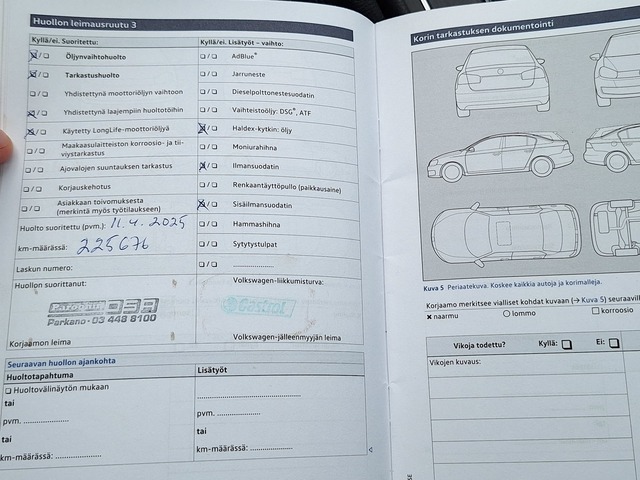 Huollon leimausruutu 3
Kyllä/ei. Suoritettu:
Öljynvaihtohuolto
Tarkastushuolto
Yhdistettynä moottoriöljyn vaihtoon
Yhdistettynä laajempiin huoltotöihin
Käytetty LongLife-moottoriöljyä
Maakaasulaitteiston korroosio- ja tii-
viystarkastus
Ajovalojen suuntauksen tarkastus
Korjauskehotus
Asiakkaan toivomuksesta
(merkintä myös työtilaukseen)
Huolto suoritettu (pvm.): 11.4.2025
km-määrässä: 225676
Laskun numero:
Huollon suorittanut:
DSA
Parkano - 03 448 8100
Korjaamon leima
Kyllä/ei. Lisätyöt – vaihto:
AdBlue®
Jarruneste
Dieselpolttonestesuodatin
Vaihteistoöljy: DSG®, ATF
Haldex-kytkin: öljy
Moniurahihna
Ilmansuodatin
Renkaantäyttöpullo (paikkausaine)
Sisäilmansuodatin
Hammashihna
Sytytystulpat
....................
Volkswagen-liikkumisturva:
Castrol
Volkswagen-jälleenmyyjän leima
Seuraavan huollon ajankohta
Huoltotapahtuma
Huoltovälinäytön mukaan
tai
pvm. ....................
tai
km-määrässä: ....................
Lisätyöt
....................
pvm. ....................
tai
km-määrässä: ....................
Korin tarkastuksen dokumentointi
Kuva 5 Periaatekuva. Koskee kaikkia autoja ja korimalleja.
Korjaamo merkitsee vialliset kohdat kuvaan (→ Kuva 5)
x naarmu
lommo
korroosio
Vikoja todettu? Kyllä: Ei:
Vikojen kuvaus: